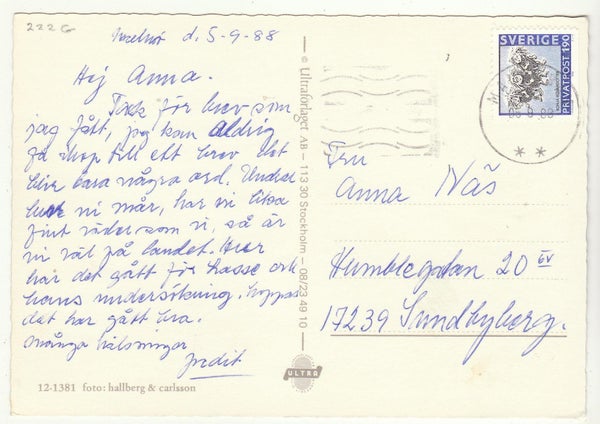 222 G
d. 5-9-88
Hej Anna.
Tack för brev som
jag fått, jag kan aldrig
få ihop till ett brev det
blir bara några ord. Undrar
hur ni mår, har ni lika
fint väder som vi, så är
ni väl på landet. Hur
har det gått för Lasse och
hans undersökning, hoppas
det har gått bra.
många hälsningar
12-1381 foto: hallberg & carlsson
© Ultraförlaget AB — 113 30 Stockholm — 08/23 49 10
ULTRA
SVERIGE
PRIVATPOST 190
Fru
Anna Näs
Humblegatan 20 öv
17239 Sundbyberg.